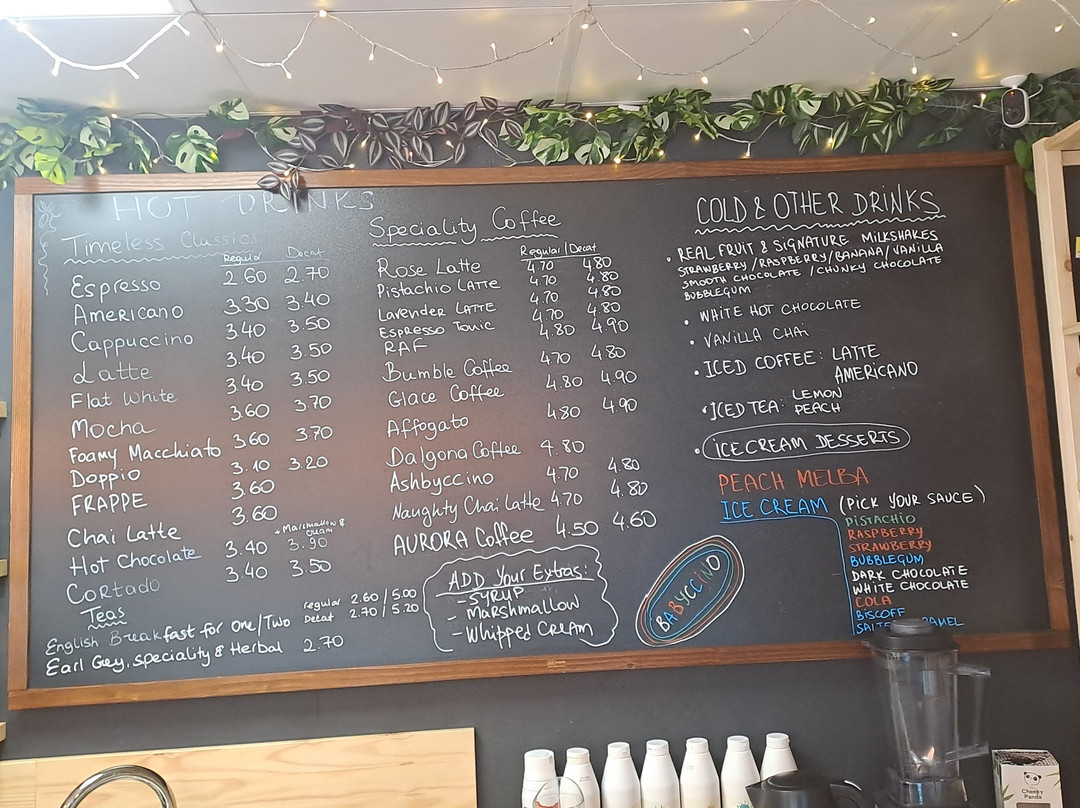 HOT DRINKS
Timeless Classics
Regular Decaf
Espresso 2.60 2.70
Americano 3.30 3.40
Cappuccino 3.40 3.50
Latte 3.40 3.50
Flat White 3.40 3.50
Mocha 3.60 3.70
Foamy Macchiato 3.60 3.70
Doppio 3.10 3.20
FRAPPE 3.60
Chai Latte 3.60
+ Marshmallow &
cream
Hot Chocolate 3.40 3.90
Cortado 3.40 3.50
Teas
English Breakfast for One/Two regular 2.60 / 5.00
Decaf 2.70 / 5.20
Earl Grey, speciality & Herbal 2.70
Speciality Coffee
Regular / Decaf
Rose Latte 4.70 4.80
Pistachio Latte 4.70 4.80
Lavender Latte 4.70 4.80
Espresso Tonic 4.70 4.80
RAF 4.80 4.90
Bumble Coffee 4.70 4.80
Glace Coffee 4.80 4.90
Affogato 4.80 4.90
Dalgona Coffee 4.80
Ashbyccino 4.70 4.80
Naughty Chai Latte 4.70 4.80
AURORA Coffee 4.50 4.60
ADD Your Extras:
- SYRUP
- Marshmallow
- Whipped Cream
BABYCCINO
COLD & OTHER DRINKS
• REAL FRUIT & SIGNATURE MILKSHAKES
STRAWBERRY / RASPBERRY / BANANA / VANILLA
SMOOTH CHOCOLATE / CHUNKY CHOCOLATE
BUBBLEGUM
• WHITE HOT CHOCOLATE
• VANILLA CHAI
• ICED COFFEE: LATTE
AMERICANO
• ICED TEA: LEMON
PEACH
• ICECREAM DESSERTS
PEACH MELBA
ICE CREAM (PICK YOUR SAUCE)
PISTACHIO
RASPBERRY
STRAWBERRY
BUBBLEGUM
DARK CHOCOLATE
WHITE CHOCOLATE
COLA
BISCOFF
Cheeky
Panda